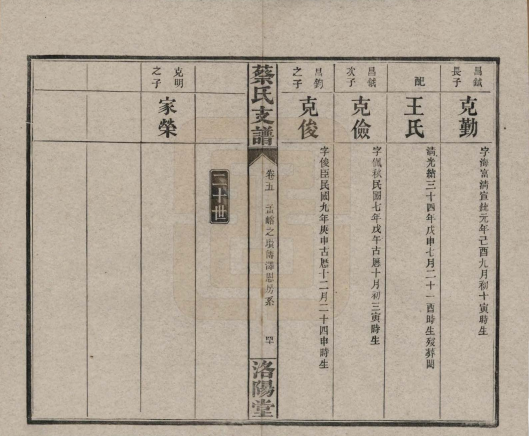 昌鉞
長子
克勤
字梅富清宣統元年己酉九月初十寅時生
配
王氏
清光緒三十四年戊申七月二十一酉時生歿葬闕
昌鉞
次子
克儉
字佩秋民國七年戊午古曆十月初三寅時生
昌鈞
之子
克俊
字俊臣民國九年庚申古曆十二月二十四申時生
蔡氏支譜
卷五
洛陽堂
二十世
克明
之子
家榮